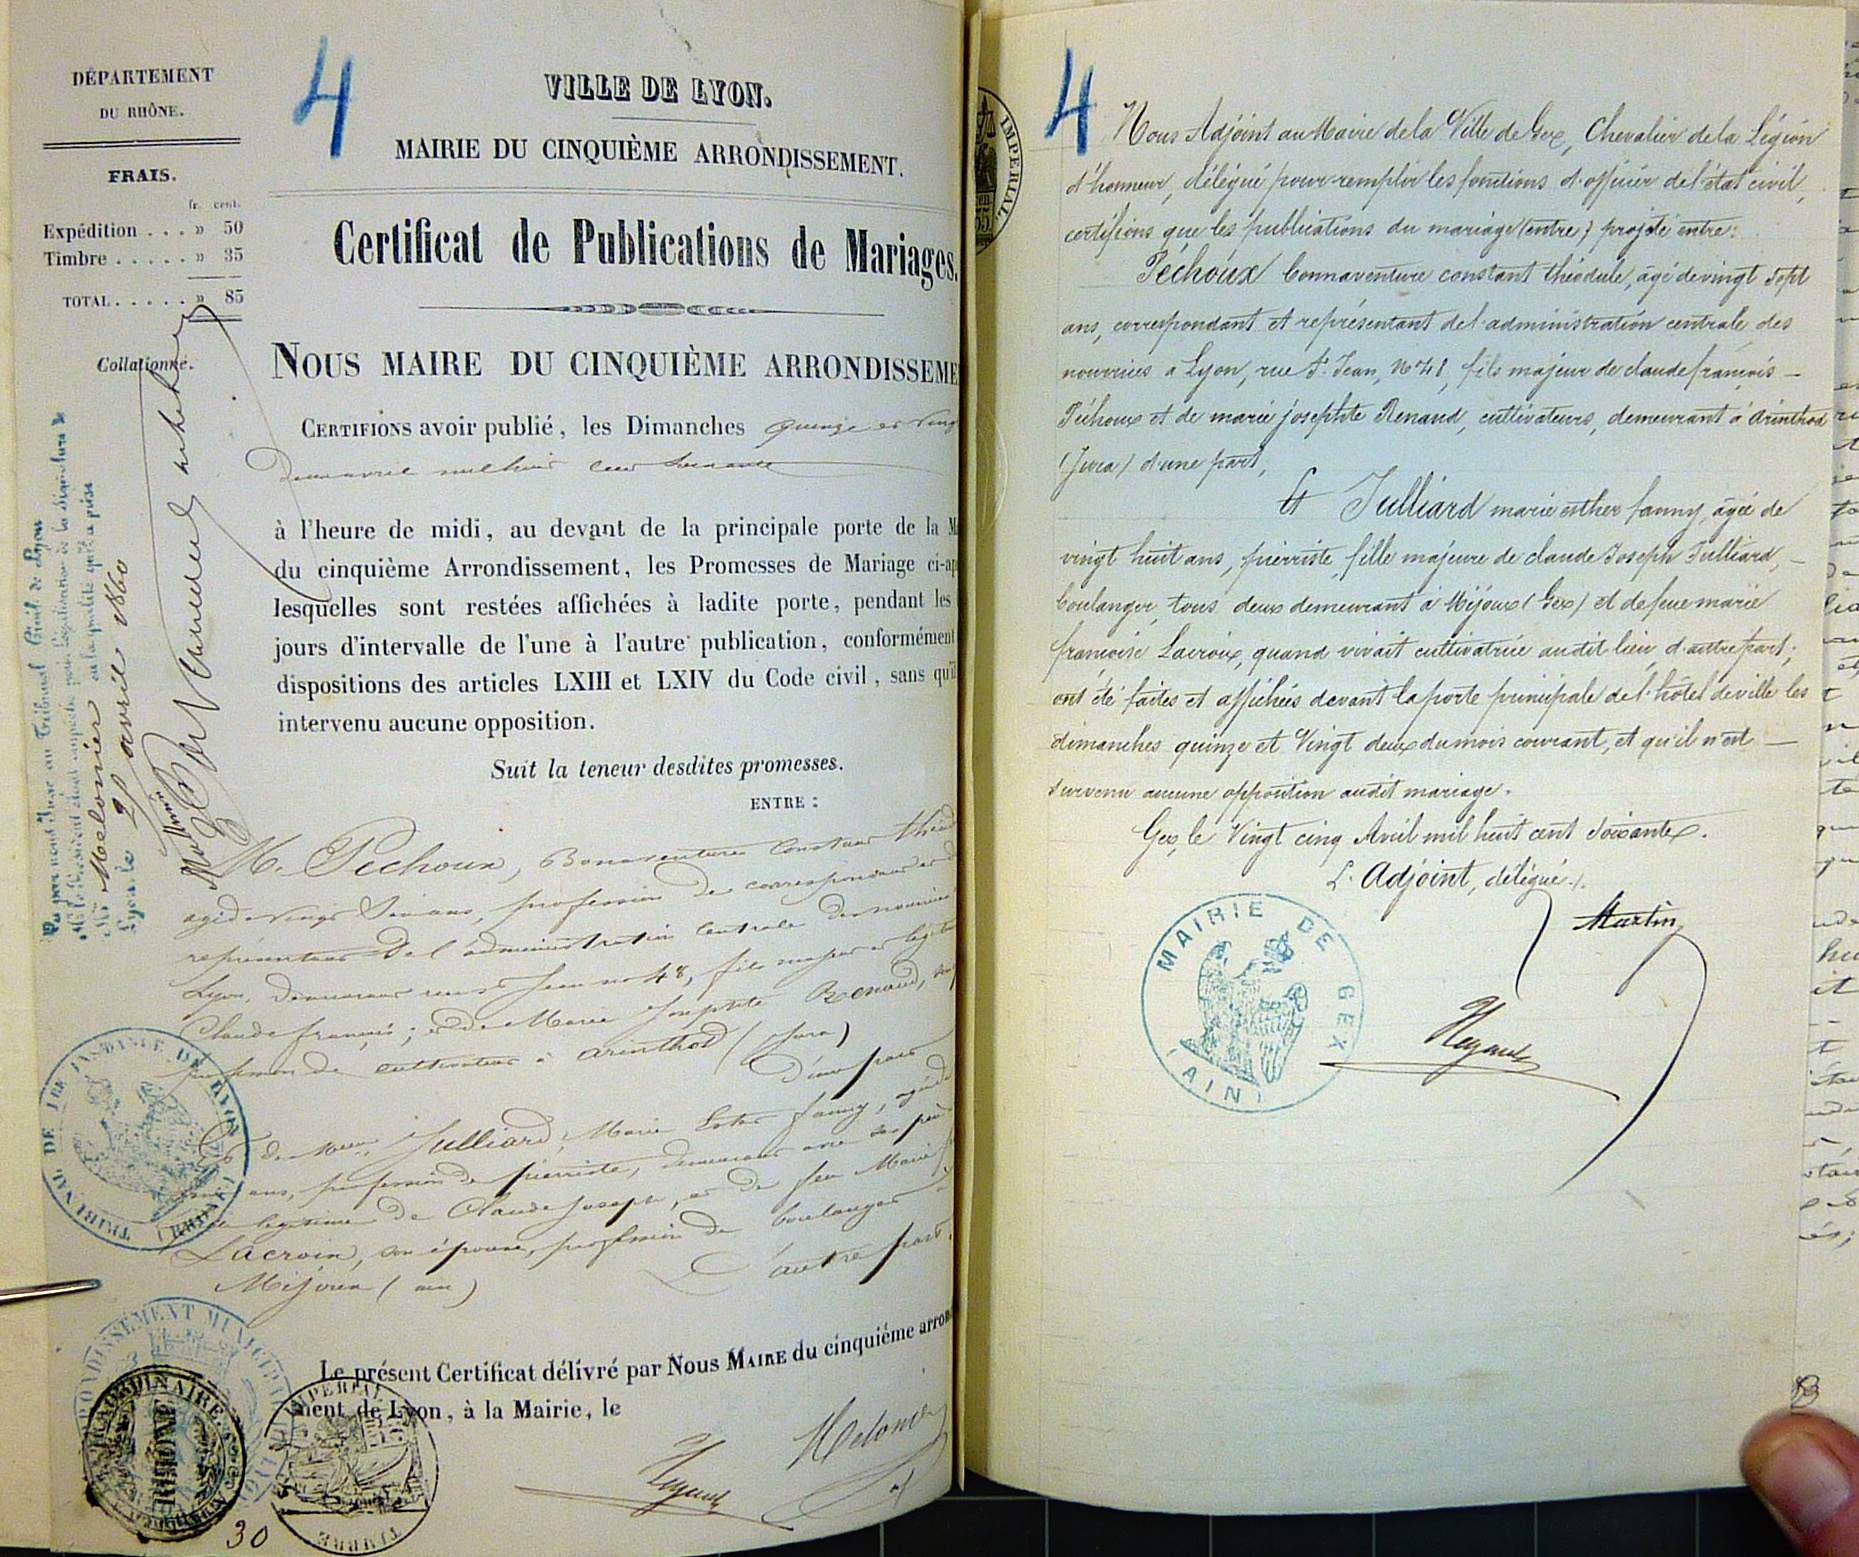 DÉPARTEMENT
DU RHÔNE.
FRAIS.
fr. cent.
Expédition . . . » 50
Timbre . . . . . » 35
TOTAL . . . . . » 85
Collationné.
4
VILLE DE LYON.
MAIRIE DU CINQUIÈME ARRONDISSEMENT.
Certificat de Publications de Mariages.
NOUS MAIRE DU CINQUIÈME ARRONDISSEME
CERTIFIONS avoir publié, les Dimanches quinze et vingt
Deux avril mil huit cent soixante
à l'heure de midi, au devant de la principale porte de la M
du cinquième Arrondissement, les Promesses de Mariage ci-ap
lesquelles sont restées affichées à ladite porte, pendant les
jours d'intervalle de l'une à l'autre publication, conformément
dispositions des articles LXIII et LXIV du Code civil, sans qu'il
intervenu aucune opposition.
Suit la teneur desdites promesses.
ENTRE :
M. Pechoux, Bonaventure Constant Théod
agé de vingt ans, profession de correspondant et
représentant de l'administration centrale des nourrices
Lyon, demeurant rue St Jean no 48, fils majeur et légitime
Claude françois; et de Marie Josephte Renaud,
profession de cultivateurs à arinthod (Jura)
D'une part
Et de Melle Julliard, Marie Ester fanny, agée de
ans, profession de pierriste, demeurant avec son père
légitime de Claude Joseph, et de feu Marie f
Lacroix, son épouse, profession de boulanger à
Mijoux (ain) D'autre part.
Le présent Certificat délivré par NOUS MAIRE du cinquième arron
ment de Lyon, à la Mairie, le
30
Vu par nous Juge au Tribunal Civil de Lyon
pour légalisation de la signature de
Mr Melonier en la qualité qu'il a prise
Lyon le 25 avril 1860
TRIBUNAL DE 1RE INSTANCE DE LYON (RHONE)
IMPERIAL
TIMBRE
4
IMPERIAL
Nous Adjoint au Maire de la Ville de Gex, Chevalier de la Légion
d'honneur, délégué pour remplir les fonctions d'officier de l'état civil,
certifions que les publications du mariage (entre) projeté entre:
Péchoux bonnaventure constant théodule, agé de vingt sept
ans, correspondant et représentant de l'administration centrale des
nourrices a Lyon, rue St Jean, No 48, fils majeur de claude françois —
Péchoux et de marie josephte Renaud, cultivateurs, demeurant à Arinthod
(Jura) d'une part,
Et Julliard marie esther fanny, agée de
vingt huit ans, pierriste, fille majeure de claude Joseph Julliard, —
boulanger, tous deux demeurant à Mijoux (Gex) et de feue marie
françoise Lacroix, quand vivait cultivatrice audit lieu, d'autre part;
ont été faites et affichées devant la porte principale de l'hôtel de ville les
dimanches quinze et Vingt deux du mois courant, et qu'il n'est —
survenu aucune opposition audit mariage.
Gex, le Vingt cinq Avril mil huit cent soixante.
L'Adjoint, délégué.
Martin
MAIRIE DE GEX
(AIN)